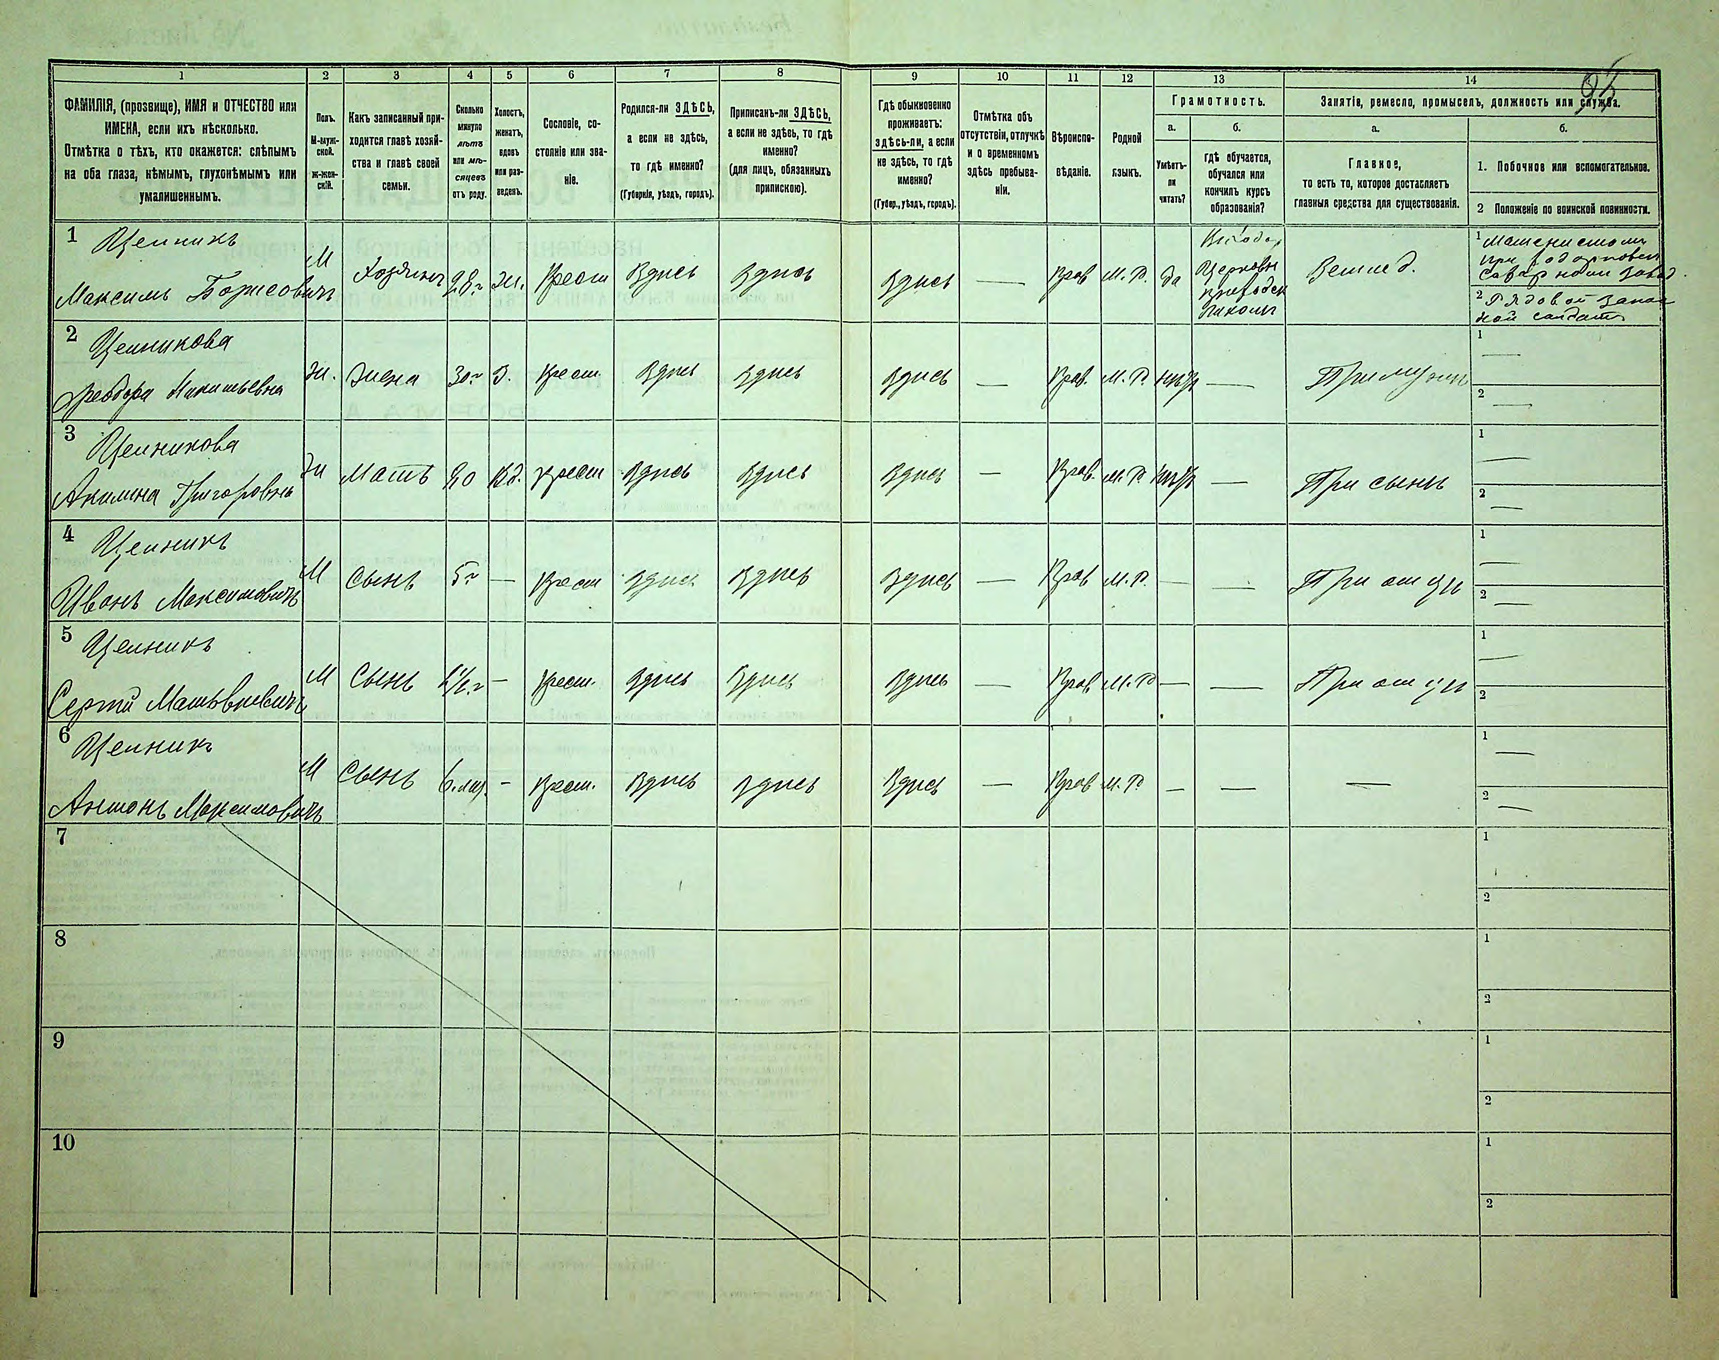 95
1 2 3 4 5 6 7 8 9 10 11 12 13 14
ФАМИЛІЯ, (прозвище), ИМЯ и ОТЧЕСТВО или
ИМЕНА, если ихъ нѣсколько.
Отмѣтка о тѣхъ, кто окажется: слѣпымъ
на оба глаза, нѣмымъ, глухонѣмымъ или
умалишеннымъ.
Полъ.
М-муж-
ской.
Ж-жен-
скій.
Какъ записанный при-
ходится главѣ хозяй-
ства и главѣ своей
семьи.
Сколько
минуло
лѣтъ
или мѣ-
сяцевъ
отъ роду.
Холостъ,
женатъ,
вдовъ
или раз-
веденъ.
Сословіе, со-
стояніе или зва-
ніе.
Родился-ли ЗДѢСЬ,
а если не здѣсь,
то гдѣ именно?
(Губернія, уѣздъ, городъ).
Приписанъ-ли ЗДѢСЬ,
а если не здѣсь, то гдѣ
именно?
(для лицъ, обязанныхъ
припискою).
Гдѣ обыкновенно
проживаетъ:
здѣсь-ли, а если
не здѣсь, то гдѣ
именно?
(Губер., уѣздъ, городъ).
Отмѣтка объ
отсутствіи, отлучкѣ
и о временномъ
здѣсь пребыва-
ніи.
Вѣроиспо-
вѣданіе.
Родной
языкъ.
Грамотность.
а.
Умѣетъ-
ли
читать?
б.
гдѣ обучается,
обучался или
кончилъ курсъ
образованія?
Занятіе, ремесло, промыселъ, должность или служба.
а.
Главное,
то есть то, которое доставляетъ
главныя средства для существованія.
б.
1. Побочное или вспомогательное.
2 Положеніе по воинской повинности.
1 Цешникъ
Максимъ Борисовичъ
М Хозяинъ 28 г. ж. Крест Здѣсь Здѣсь Здѣсь — Прав М. Р. да
Церковн
приходск
школы
Землед.
1 Машинистомъ
при
заво
2 Рядовой запас
ной солдатъ
2 Цешникова
Ж. Жена 30 г. З. Крест. Здѣсь Здѣсь Здѣсь — Прав. М. Р. нѣтъ — При мужѣ
1 —
2 —
3 Цешникова
Акилина Григоровна
Ж Мать 60 Вд. Крест Здѣсь Здѣсь Здѣсь — Прав. М. Р. нѣтъ — При сынѣ
1 —
2 —
4 Цешникъ
Иванъ Максимовичъ
М Сынъ 5 г. — Крест Здѣсь Здѣсь Здѣсь — Прав М. Р. — — При отцѣ
1 —
2 —
5 Цешникъ
Сергѣй
М Сынъ — Крест. Здѣсь Здѣсь Здѣсь — Прав М. Р. — — При отцѣ
1 —
2
6 Цешникъ
Антонъ Максимовичъ
М Сынъ 6 — Крест. Здѣсь Здѣсь Здѣсь — Прав М. Р. — — —
1 —
2 —
7
1
2
8
1
2
9
1
2
10
1
2